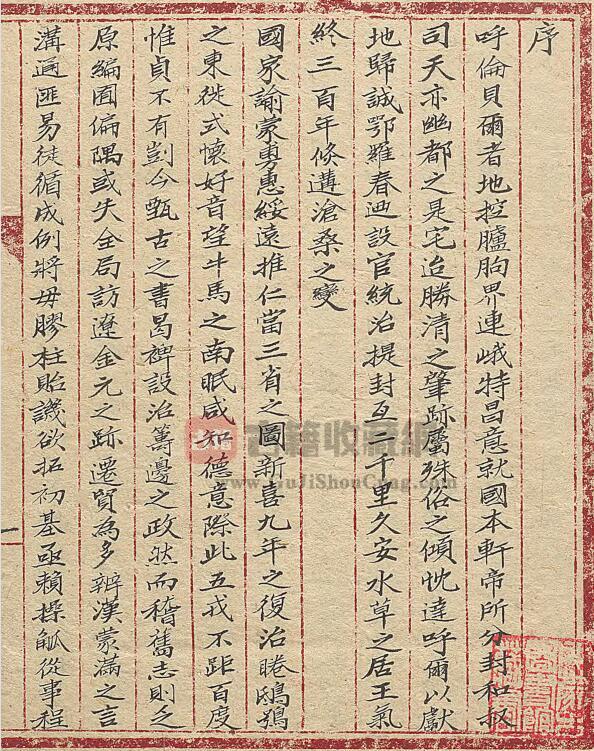 序
呼倫貝爾者地控臚朐界連峨特昌意就國本軒帝所分封和叔
司天亦幽都之是宅迨勝清之肇跡屬殊俗之傾忱達呼爾以獻
地歸誠鄂羅春迺設官統治提封亙二千里久安水草之居王氣
終三百年倏遘滄桑之變
國家諭蒙旉惠綏遠推仁當三省之圖新喜九年之復治睠鴟鴞
之東徙式懷好音望牛馬之南眠咸知德意際此五戎不距百度
惟貞不有剴今甄古之書曷裨設治籌邊之政然而稽舊志則乏
原編囿偏隅或失全局訪遼金元之跡遷貿為多辨漢蒙滿之言
溝通匪易徒循成例將毋膠柱貽譏欲拓初基亟賴操觚從事程
古籍收藏網
www.GuJiShouCang.com